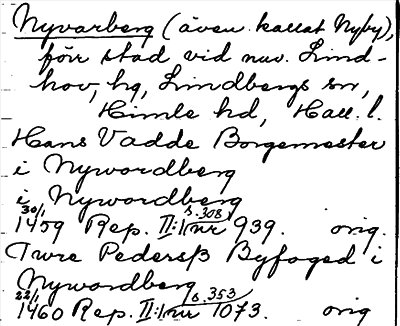 Nyvarberg (även kallat Nyby),
förr stad vid nuv. Lind-
hov, hg, Lindbergs sn,
Himle hd, Hall. l.
Hans Vadde Borgemester
i Nywordberg
i Nywordberg
30/1 s. 308
1459 Rep. II:1 nr 939. orig.
Twre Pederss Byfoged i
Nywordberg
22/1 s. 353
1460 Rep. II:1 nr 1073. orig